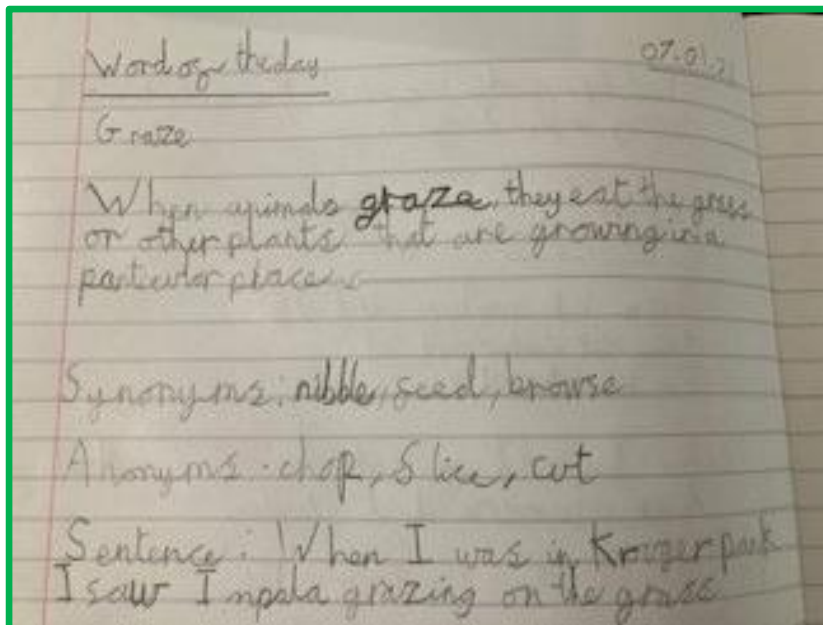 Word of the day
07.01.21
Graze
When animals graze, they eat the grass
or other plants that are growing in a
particular place.
Synonyms: nibble, feed, browse
Anonyms: chop, Slice, cut
Sentence: When I was in Kruger park
I saw Impala grazing on the grass